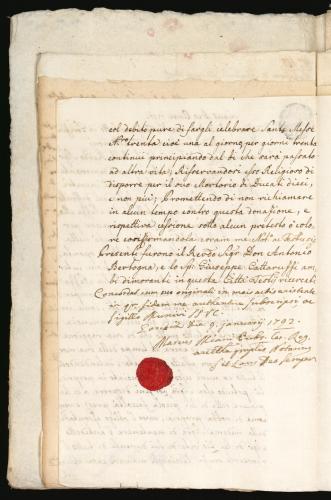 col debito pure di fargli celebrare Sante Messe
N.º trenta cioè una al giorno per giorni trenta
continui principiando dal dì che sarà passato
ad altra vita; Riservandosi esso Religioso di
disporre per il suo Mortorio di Ducati dieci,
e non più; Promettendo di non richiamare
in alcun tempo contro questa donazione, e
rispettiva cessione sotto alcun pretesto ò colo,
re confirmandola coram me Not.º ac Testibus
Presenti furono il Revdo Sigr Don Antonio
Bertogna; e lo Giuseppe Cattaruffe am,
bi dimorante in questa Città Testij ricercati
Concordat cum suo originali in meis actis existente
in fidem me authentice subscripsi ac
sigillo munivi
die 9. January 1792.
Marcus
Notarius
Laus Deo semper